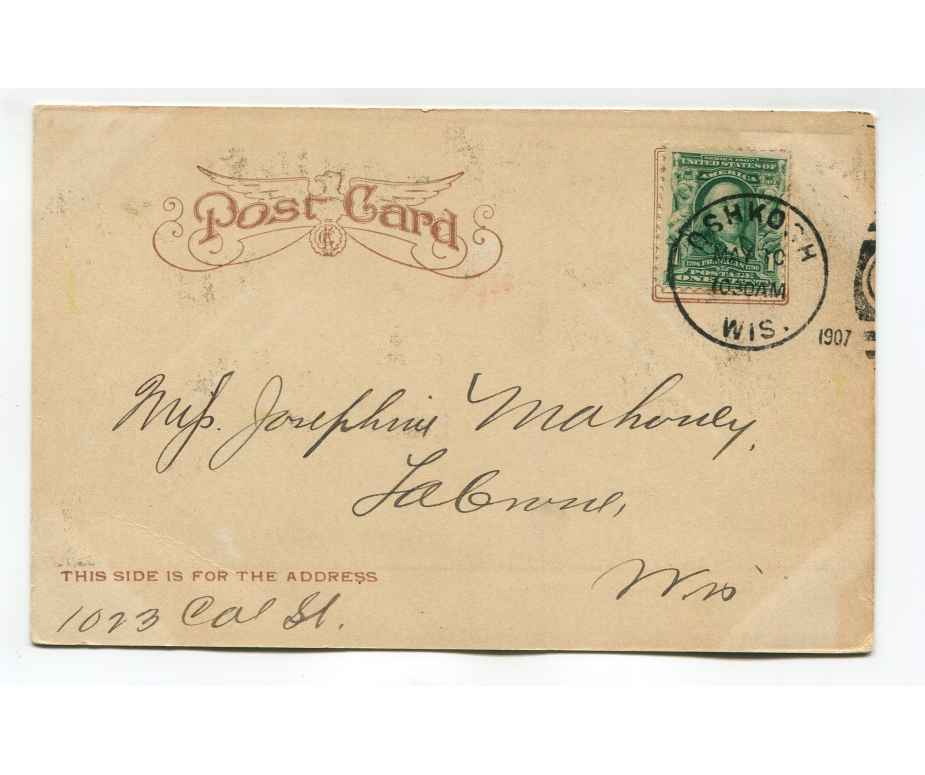 Post Card
SERIES 1902
UNITED STATES OF
AMERICA
FRANKLIN
POSTAGE
ONE
OSHKOSH
MAY 10
1030AM
WIS.
1907
Miss. Josephine Mahoney,
LaCrosse,
Wis
THIS SIDE IS FOR THE ADDRESS
1023 Cal St.